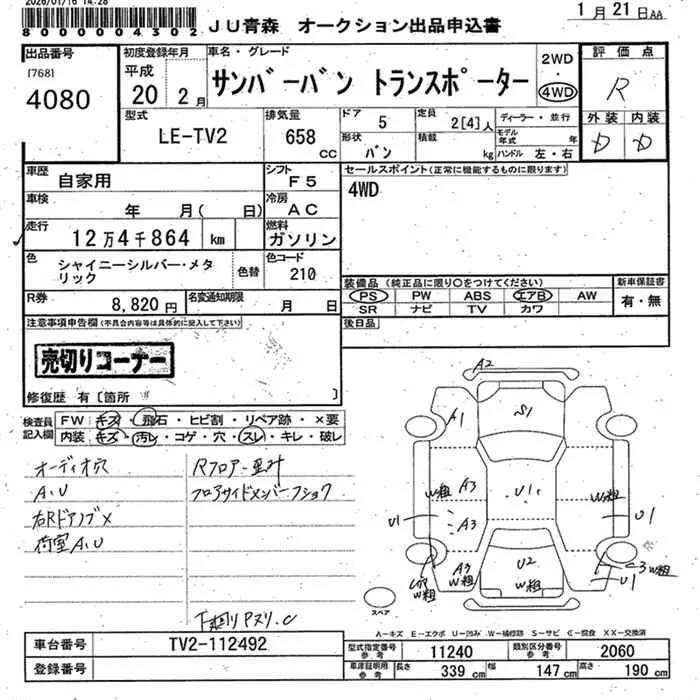 2026/01/16 14:28
8000004302 JU青森 オークション出品申込書 1月21日AA
出品番号 初度登録年月 車名・グレード 2WD 評価点
[768] 平成 サンバーバン トランスポーター 4WD R
4080 20 2月
型式 排気量 ドア 5 定員 2[4]人 ディーラー・並行 外装 内装
LE-TV2 658 CC 形状 バン 積載 kg モデル年式 年 D D
ハンドル 左・右
車歴 自家用 シフト F5 セールスポイント(正常に機能するものに限ります)
車検 年 月( 日) 冷房 AC 4WD
走行 12万4千864 km 燃料 ガソリン
色 シャイニーシルバー・メタリック 色替 色コード 210
装備品(純正品に限り○をつけてください) 新車保証書
R券 8,820円 名変通知期限 月 日 PS PW ABS エアB AW 有・無
SR ナビ TV カワ
注意事項申告欄(不具合内容等は具体的に記入して下さい) 後日品
売切りコーナー
修復歴 有〔箇所 〕
検査員記入欄 FW キズ・飛石・ヒビ割・リペア跡・×要
内装 キズ・汚レ・コゲ・穴・スレ・キレ・破レ
オーディオ穴 Rフロアー歪ミ
A、U フロアサイドメンバーフショク
右RドアノブX
荷室A、U
下廻りPスリ、C
A2
A1 S1
W祖 A3 U1 W祖
U1 A3 U1
A3 W祖 U2 W祖 W祖 U1
スペア
A-キズ E-エクボ U-凹み W-補修跡 S-サビ C-腐食 XX-交換済
車台番号 TV2-112492 型式指定番号 参考 11240 類別区分番号 参考 2060
登録番号 車庫証明用 参考 長さ 339 cm 幅 147 cm 高さ 190 cm